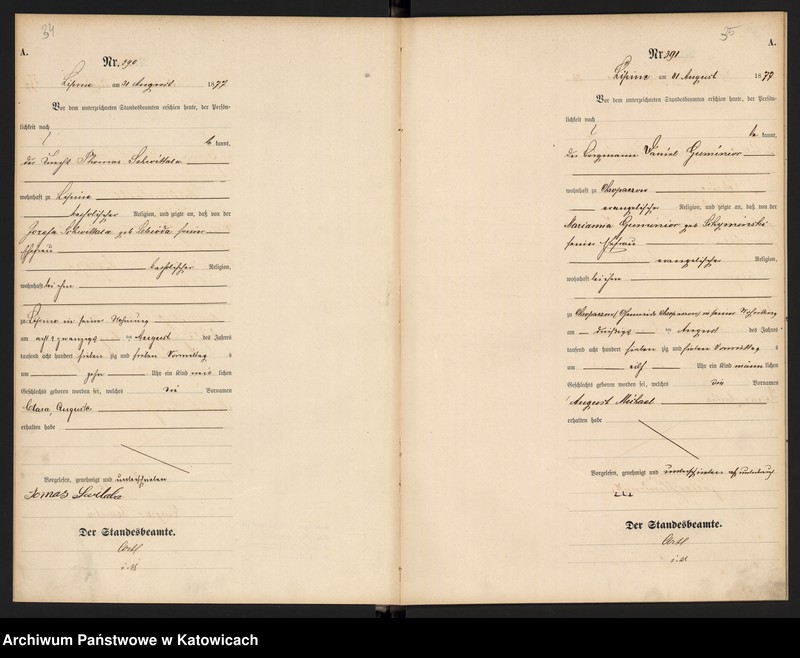 34
A.
Nr. 390
Lipine am 31 August 1877
Vor dem unterzeichneten Standesbeamten erschien heute, der Persön-
lichkeit nach
be kannt,
der Thomas Schwittala
wohnhaft zu Lipine
katholischer Religion, und zeigte an, daß von der
Josefa Schwittala geb seiner
Ehefrau
katholischer Religion,
wohnhaft bei ihm
zu Lipine in seiner Wohnung
am acht u zwanzigsten August des Jahres
tausend acht hundert sieben zig und sieben Vormittag s
um zehn Uhr ein Kind weib lichen
Geschlechts geboren worden sei, welches die Vornamen
Clara, Auguste
erhalten habe
Vorgelesen, genehmigt und unterschrieben
Tomas
Der Standesbeamte.
35
A.
Nr. 391
Lipine am 31 August 1877
Vor dem unterzeichneten Standesbeamten erschien heute, der Persön-
lichkeit nach
be kannt,
der Bergmann Daniel Guminior
wohnhaft zu Chropaczow
evangelischer Religion, und zeigte an, daß von der
Marianna Guminior geb
seiner Ehefrau
evangelischer Religion,
wohnhaft bei ihm
zu Chropaczow Gemeinde Chropaczow in seiner Wohnung
am dreißigsten August des Jahres
tausend acht hundert sieben zig und sieben Vormittag s
um elf Uhr ein Kind männ lichen
Geschlechts geboren worden sei, welches die Vornamen
August Michael
erhalten habe
Vorgelesen, genehmigt und
Der Standesbeamte.
Archiwum Państwowe w Katowicach